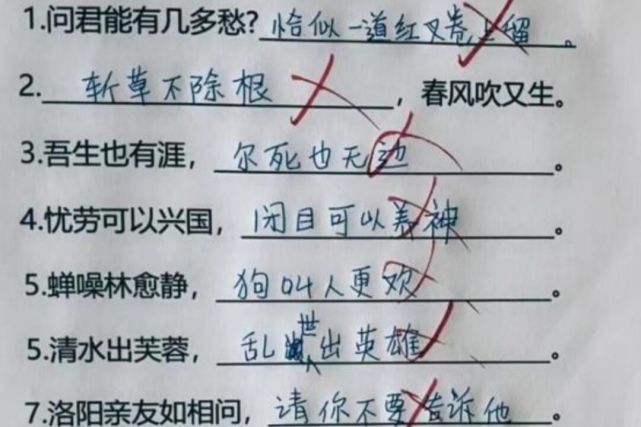 1.问君能有几多愁?恰似一道红叉卷上留。
2.斩草不除根，春风吹又生。
3.吾生也有涯，尔死也无边。
4.忧劳可以兴国，闭目可以养神。
5.蝉噪林愈静，狗叫人更欢。
5.清水出芙蓉，乱世出英雄。
7.洛阳亲友如相问，请你不要告诉他。